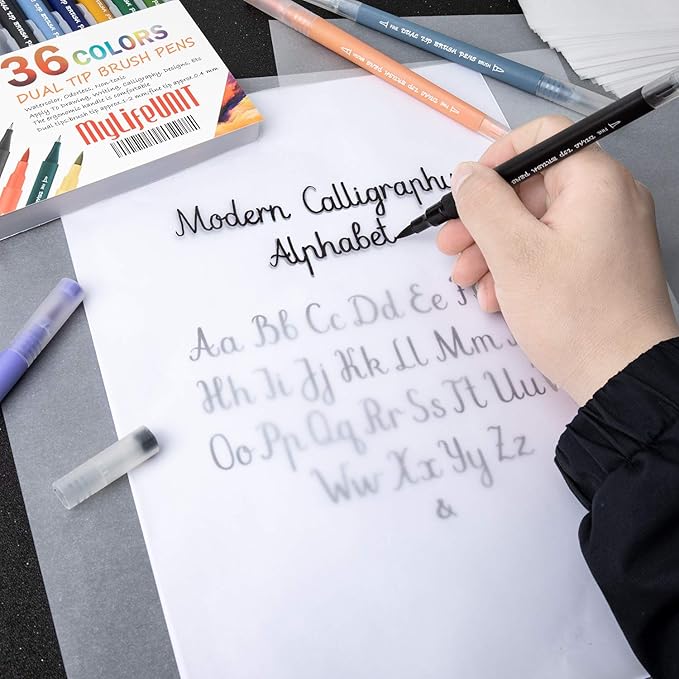 36 COLORS
DUAL TIP BRUSH PENS
Watercolor, Odorless, Non-toxic
Apply to Drawing, Writing, Calligraphy, Designs, Etc
The ergonomic handle is comfortable
Dual tips:brush tip approx.1-2 mm/fine tip approx.0.4 mm
MyLifeUNIT
Modern Calligraphy
Alphabet
Aa Bb Cc Dd Ee
Hh Ii Jj Kk Ll Mm
Oo Pp Qq Rr Ss Tt Uu
Ww Xx Yy Zz
&
FINE DUAL TIP BRUSH PENS BRUSH
FINE DUAL TIP BRUSH PENS BRUSH
FINE DUAL TIP BRUSH PENS